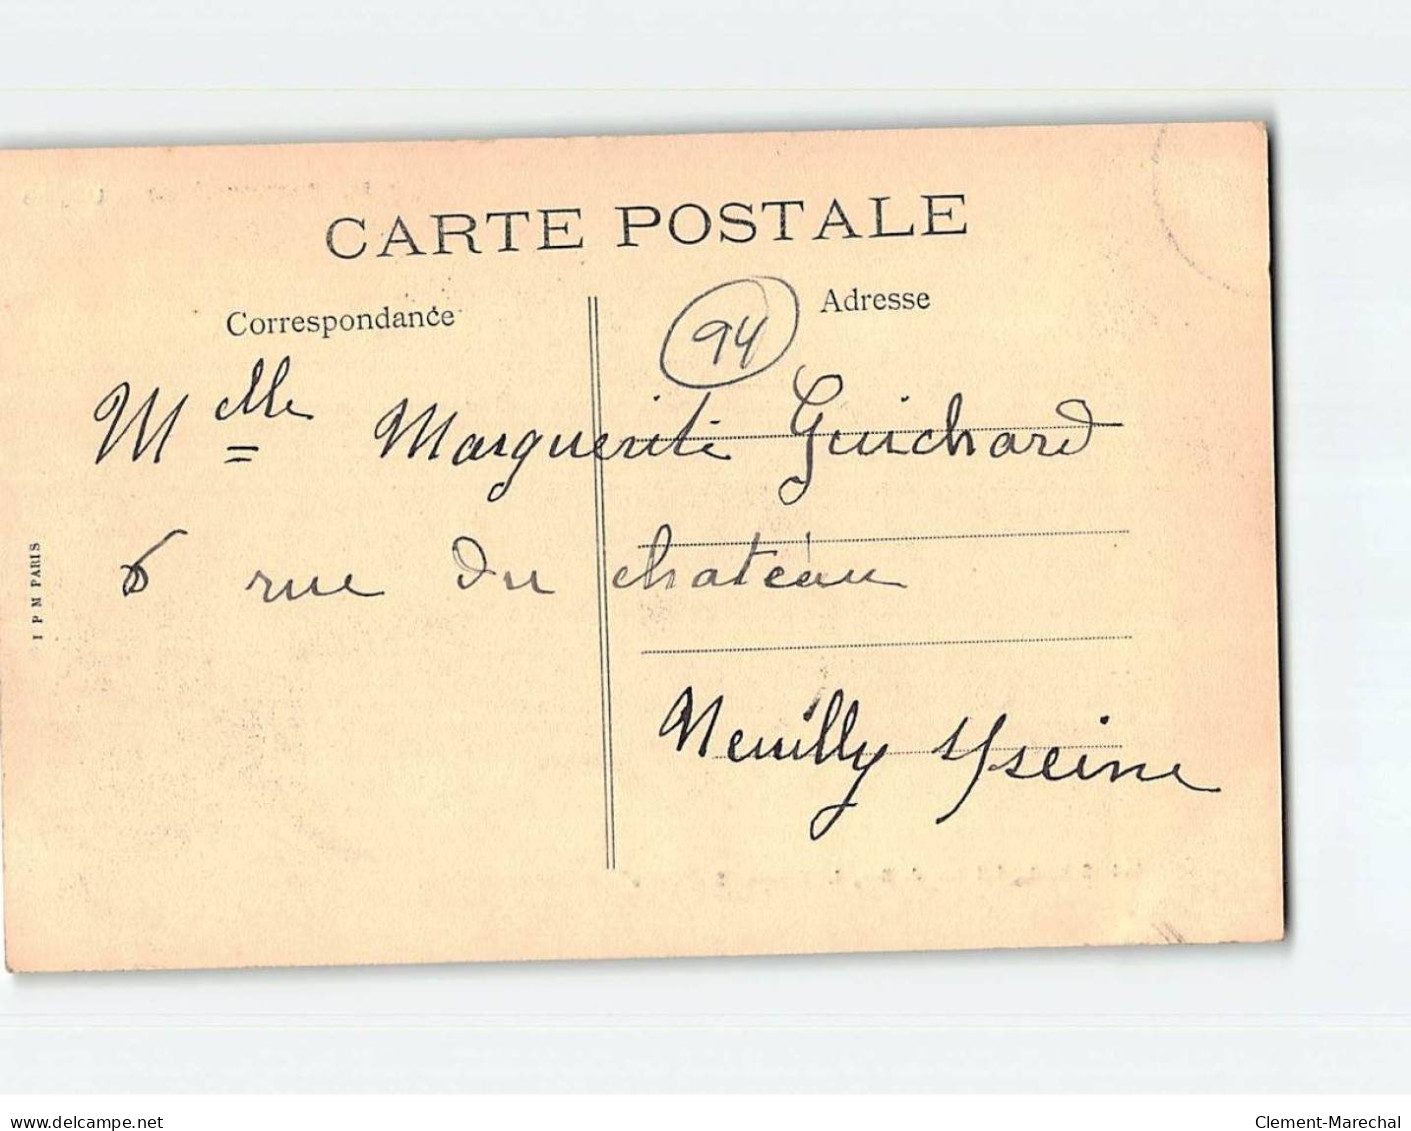 CARTE POSTALE
Correspondance
Adresse
94
Melle Marguerite Guichard
6 rue du chatéau
Neuilly s/seine
I P M PARIS
www.delcampe.net
Clement-Marechal